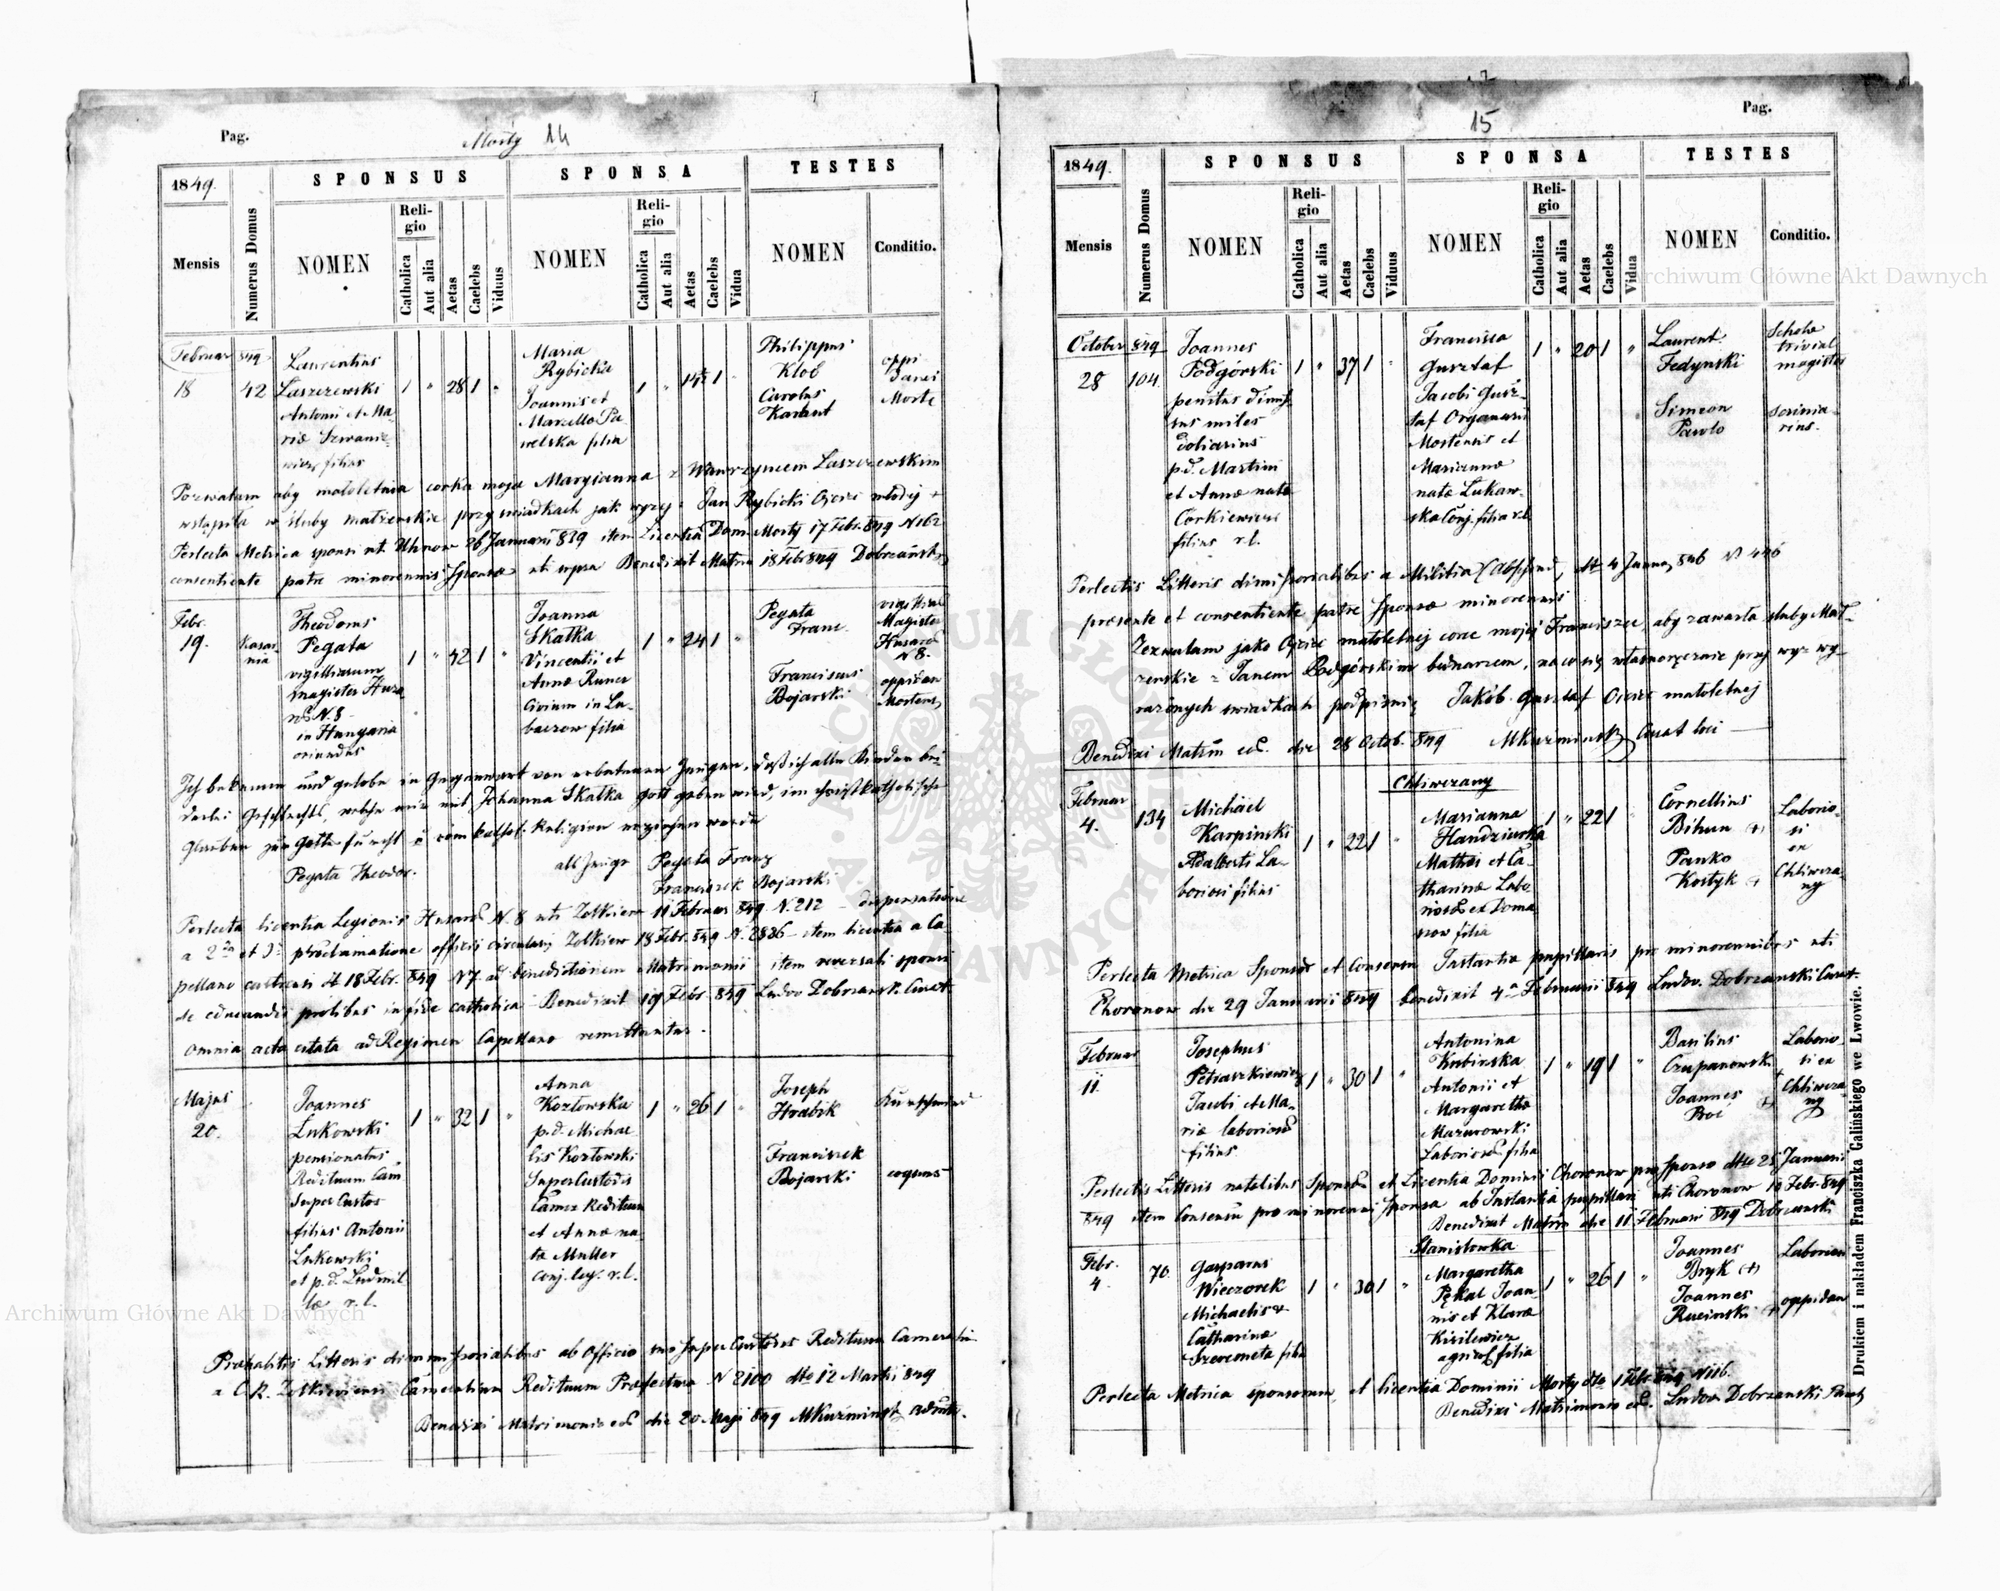 Pag.
Mosty 14
1849.
SPONSUS
SPONSA
TESTES
Mensis
Numerus Domus
NOMEN
Religio
Catholica
Aut alia
Aetas
Caelebs
Viduus
NOMEN
Religio
Catholica
Aut alia
Aetas
Caelebs
Vidua
NOMEN
Conditio.
Februar 849
18 42
Laurentius
Laszczewski
Antonii et Ma-
riæ
filius
1 " 28 1 "
Maria
Rybicka
Joannis et
Marcella Pa-
welska filia
1 " 1 "
Philippus
Kloc
Carolus
oppi
danei
Moste
Pozwalam aby małoletnia corka moja Maryianna z Wawrzyncem Laszczewskim
wstąpiła w śluby małżenskie przy swiadkach jak wyzej: Jan Rybicki Ojciec młodej +
Perlecta Metrica sponsi ut. Uhnow 26 Januarii 839 item Licentia Dom. Mosty 17 Febr. 849 N 162
consentiente patre minorennis Sponsæ uti supra Benedixit Matrim 18 Feb 849 Dobrzański
Febr.
19.
Theodorus
Pegata
magister Husa
N. 8
in Hungaria
oriundus
1 " 42 1 "
Joanna
Skałka
Vincentii et
Annæ Runer
Civium in Lu-
baczow filia
1 " 24 1 "
Pegata
Franc.
Franciscus
Bojarski
Magister
Husaror
N 8.
oppidan
Mostens
Ich bekenne und gelobe in Gegenwart von erbetenen Zeugen, daß ich alle Kinder bei-
derlei Geschlechts, welche mir mit Johanna Skałka Gott geben wird, im christkatholische
Glauben zur Gottesfurcht u röm kathol. Religion erziehen werde
Pegata Theodor.
als Zeuge Pegata Franz
Franciszek Bojarski
Perlecta licentia Legionis Husaror N. 8 uti Zolkiew 11 Februar 849 N. 212 dispensatione
a 2da et 3a proclamatione officii circularis Zolkiew 18 Febr. 849 N. 2836 - item licentia a Ca-
pellano castrensi dt 18 Febr. 849 N 7 ad benedictionem Matrimonii item reversali sponsi
de educandis prolibus in fide catholica Benedixit 19 Febr 849 Ludov Dobrzansk. Curat
omnia acta citata ad Regimen Capellano remittuntur.
Majus
20.
Joannes
Lukowski
pensionatus
Redituum Cam
Super Custos
filius Antonii
Lukowski
et p.d. Ludmil
læ r. l.
1 " 32 1 "
Anna
Kozłowska
p.d. Michae-
lis Kozłowski
Super Custodis
Camer Redituum
et Annæ na-
tæ Muller
conj. leg. r. l.
1 " 26 1 "
Joseph
Hrabik
Franciszek
Bojarski
coquus
Præhabitis Litteris dimissorialibus ab officio Super Custodis Redituum Cameralium
a C.R. Zolkieviensi Cameralium Redituum Præfectura N 2100 dto 12 Martii 849
Benedixi Matrimonio eod die 20 Maji 849 MKuzminski
Pag.
15
1849.
SPONSUS
SPONSA
TESTES
Mensis
Numerus Domus
NOMEN
Religio
Catholica
Aut alia
Aetas
Caelebs
Viduus
NOMEN
Religio
Catholica
Aut alia
Aetas
Caelebs
Vidua
NOMEN
Conditio.
October 849
28 104.
Joannes
Podgórski
penitus dimis-
sus miles
doliarius
p.d. Martini
et Annæ natæ
Corkiewicz
filius r. l.
1 " 37 1 "
Francisca
Gursztaf
Jacobi Gursz-
taf Organarii
Mostensis et
Mariannæ
natæ Lukaw-
ska Conj. filia r. l.
1 " 20 1 "
Laurent.
Fedynski
Simeon
Pawlo
Scholæ
trivial
magister
scrinia-
rius.
Perlectis Litteris dimissorialibus a Militia dto 4 Januar 846 N 446
præsente et consentiente patre Sponsæ minorennis
Zezwalam jako Ojciec małoletnej corce mojej Franciszce, aby zawarła śluby Mał-
zenskie z Janem Podgórskim bednarzem, na co się własnoręcznie przy wyz wy-
rażonych swiadkach podpisuię Jakób Gursztaf Ojciec małoletnej
Benedixi Matrim eod. die 28 Octob. 849 MKuzminski Curat loci
Chliwczany
Februar
4. 134
Michäel
Karpinski
Adalberti La-
boriosi filius
1 " 22 1 "
Marianna
Handziurka
Mathei et Ca-
tharinæ Labo-
riosor ex Doma
szow filia
1 " 22 1
Cornellius
Bihun +
Panko
Kostyk +
Laborio-
si
ex
Chliwcza-
ny
Perlecta Metrica Sponsor et Consensu Instantiæ pupillaris pro minorennibus uti
Choronow die 29 Januarii 849 benedixit 4a Februarii 849 Ludov. Dobrzanski Curat
Februar
11
Josephus
Petraszkiewicz
Jacobi et Ma-
riæ laboriosor
filius
1 " 30 1 "
Antonina
Kubirska
Antonii et
Margarethæ
Mazurowski
Laboriosor filia
1 " 19 1 "
Basilius
Czupanowsk +
Joannes
Proć +
Laborio-
si ex
Chliwcza-
ny
Perlectis Litteris natalibus Sponsor et Licentia Dominii Choronow pro Sponso dtto 25 Januarii
849 item Consensu pro minorenni Sponsa ab Instantia pupillari uti Choronow 10 Febr. 849
Benedixit Matrim die 11 Februarii 849 Dobrzanski
Stanisłowka
Febr.
4. 70.
Gasparus
Wieczorek
Michaelis &
Catharinæ
Szeremeta filius
1 " 30 1 "
Margaretha
Pękal Joan-
nis et Klaræ
Kisilewicz
agricol filia
1 " 26 1 "
Joannes
Bryk +
Joannes
Rucinski +
Laborios
oppidan
Perlecta Metrica sponsorum et licentia Dominii Mosty dto 1 Febr. 849 N 116.
Benedixi Matrimonio eod. Ludov Dobrzanski
Drukiem i nakładem Franciszka Galińskiego we Lwowie.
Archiwum Główne Akt Dawnych
Archiwum Główne Akt Dawnych
ARCHIWUM GŁÓWNE AKT DAWNYCH